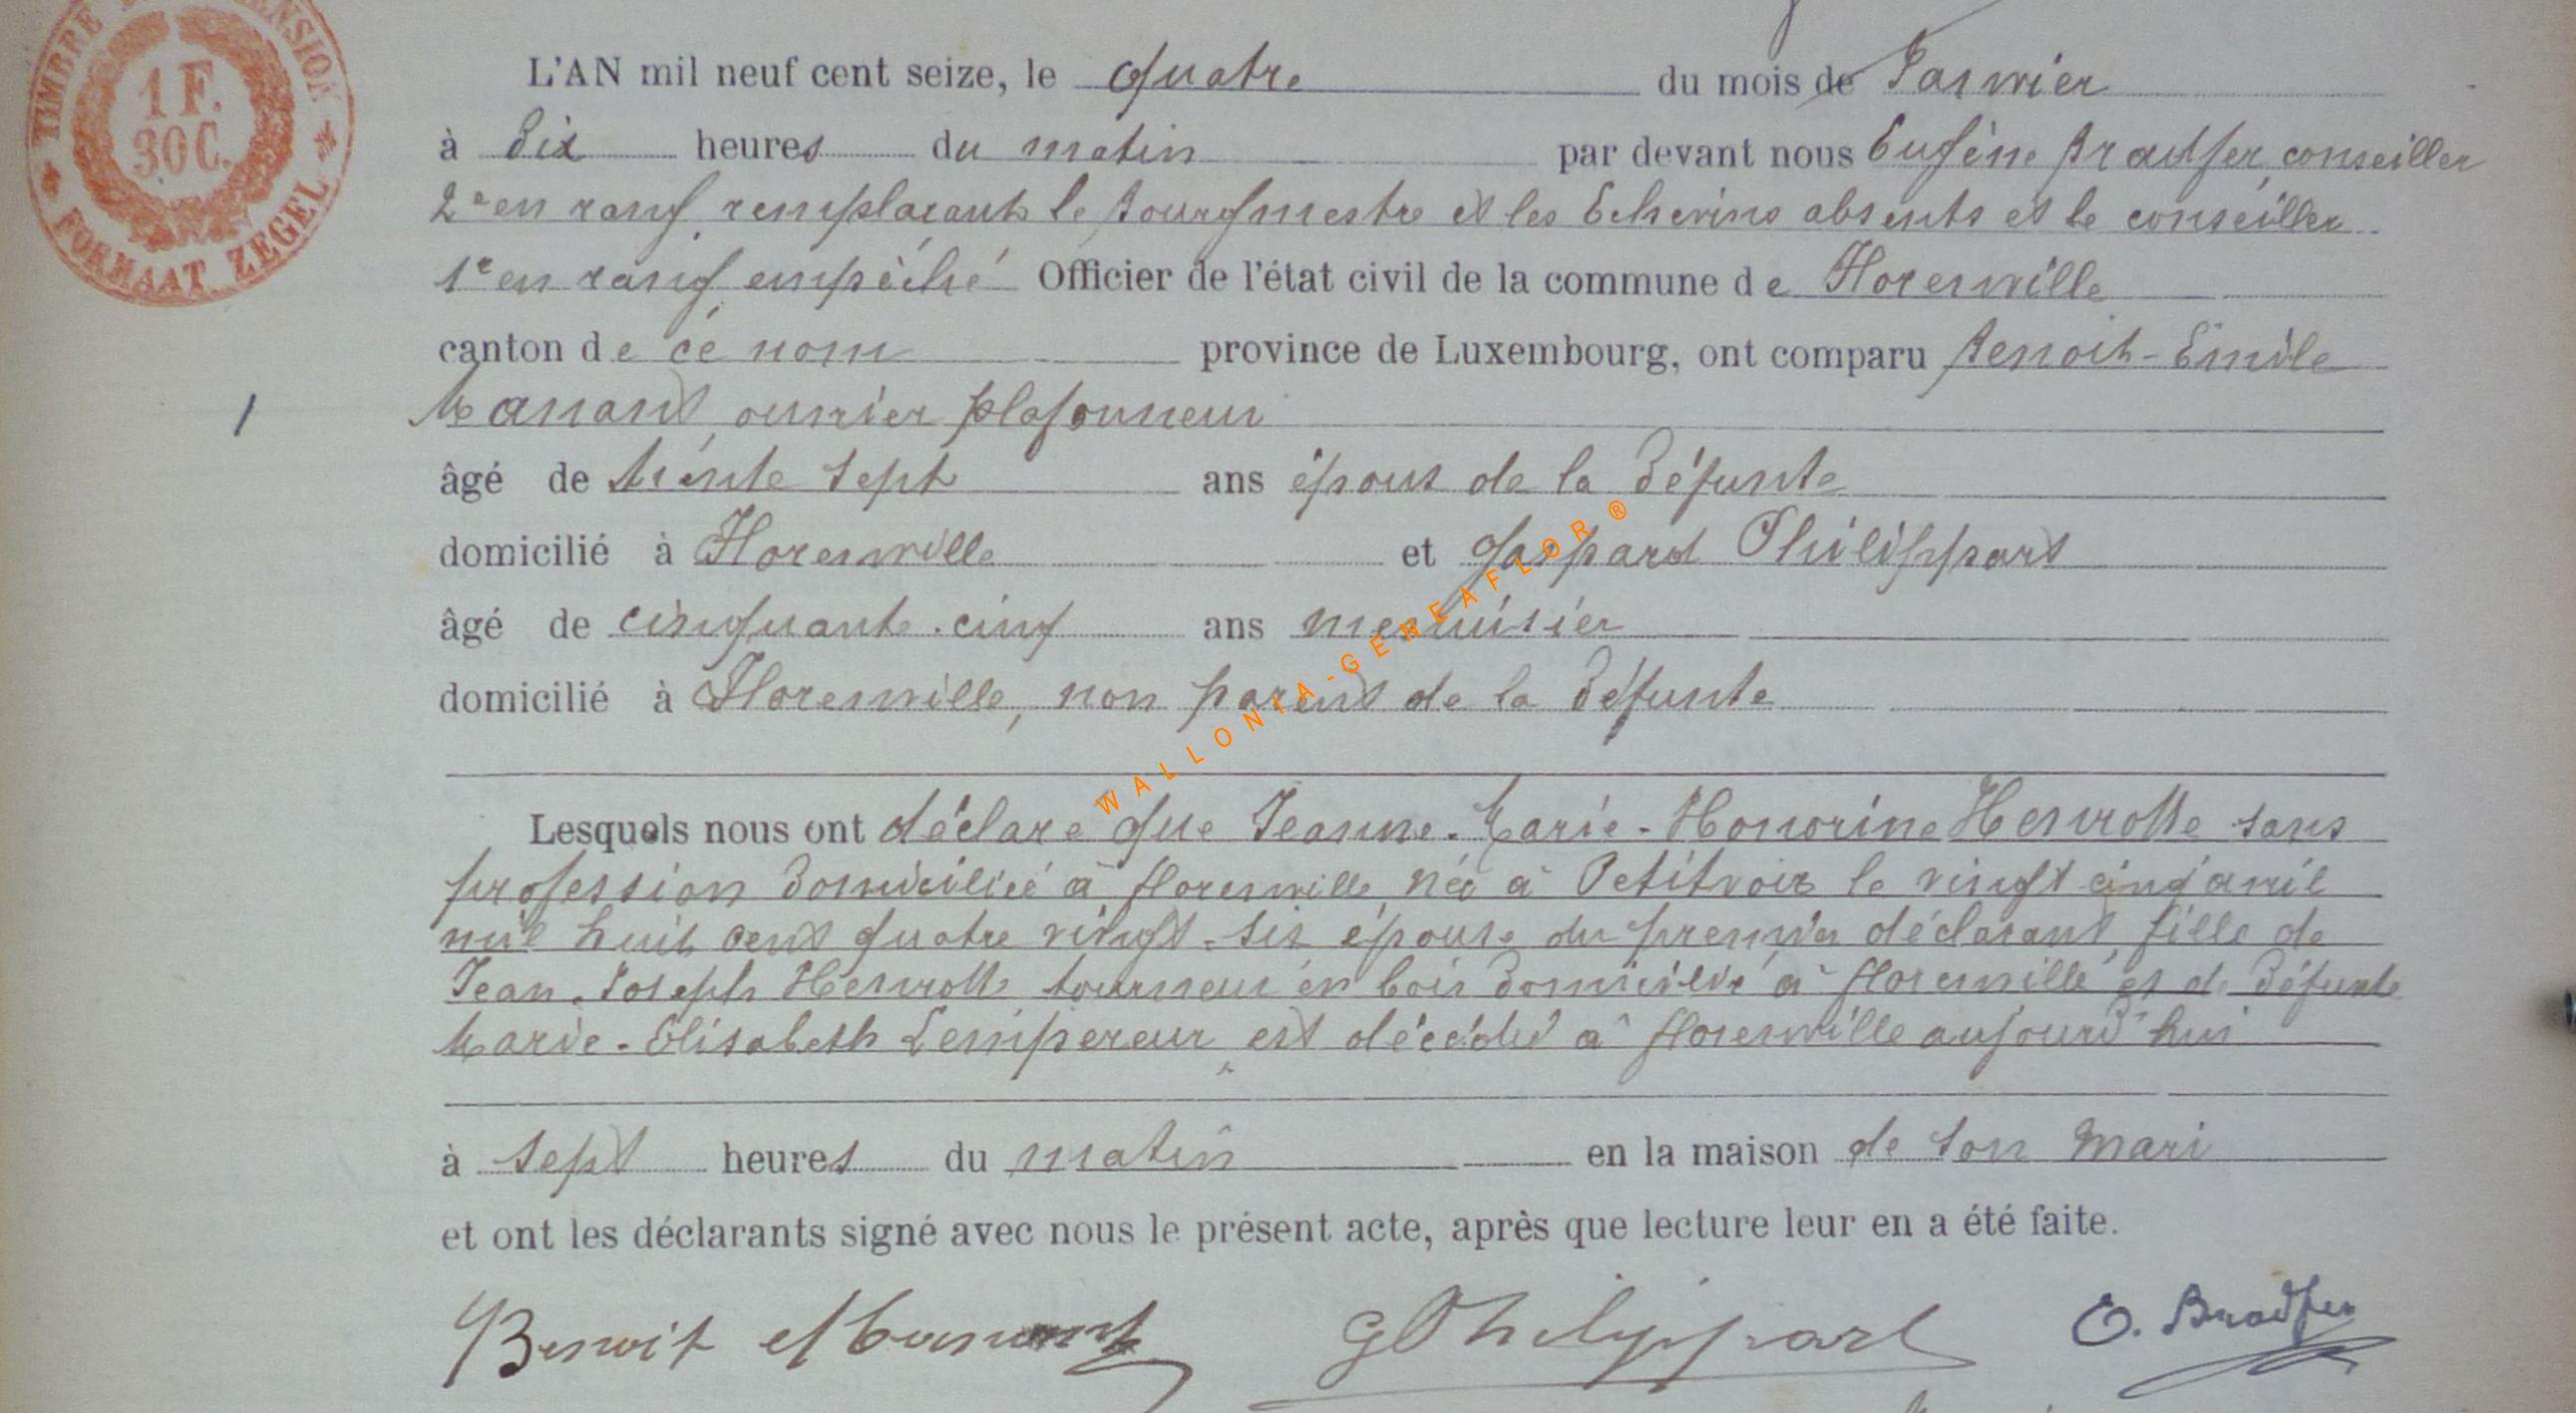 TIMBRE DE DIMENSION
1 F.
30 C.
FORMAAT ZEGEL
L'AN mil neuf cent seize, le quatre du mois de Janvier
à dix heures du matin par devant nous Eugène Bradfer, conseiller
2e en rang, remplaçant le bourgmestre et les Echevins absents et le conseiller
1e en rang empêché Officier de l'état civil de la commune de Florenville
canton de ce nom province de Luxembourg, ont comparu Benoit-Emile
1 Manand, ouvrier plafonneur
âgé de trente sept ans époux de la défunte
domicilié à Florenville et Gaspard Philippart
âgé de cinquante-cinq ans menuisier
domicilié à Florenville, non parent de la défunte
WALLONIA-GENEAFLOR ®
Lesquels nous ont déclaré que Jeanne-Marie-Honorine Henrotte sans
profession domiciliée à Florenville, née à Petitvoir le vingt cinq avril
mil huit cent quatre vingt-six épouse du premier déclarant, fille de
Jean-Joseph Henrotte tourneur en bois domicilié à Florenville et de défunte
Marie-Elisabeth Lempereur, est décédée à Florenville aujourd'hui
à sept heures du matin en la maison de son mari
et ont les déclarants signé avec nous le présent acte, après que lecture leur en a été faite.
Benoit G Philippart E. Bradfer